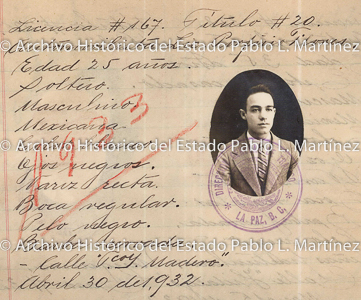 Licencia #167. Título #20.
Archivo Histórico del Estado Pablo L. Martínez
Edad 25 años.
Soltero.
Masculino.
Mexicana
Archivo Histórico del Estado Pablo L. Martínez
Ojos negros.
Nariz recta.
Boca regular.
Pelo negro.
Archivo Histórico del Estado Pablo L. Martínez
- Calle 1º y Madero".
Abril 30 de 1932.
1933
LA PAZ, B. C.